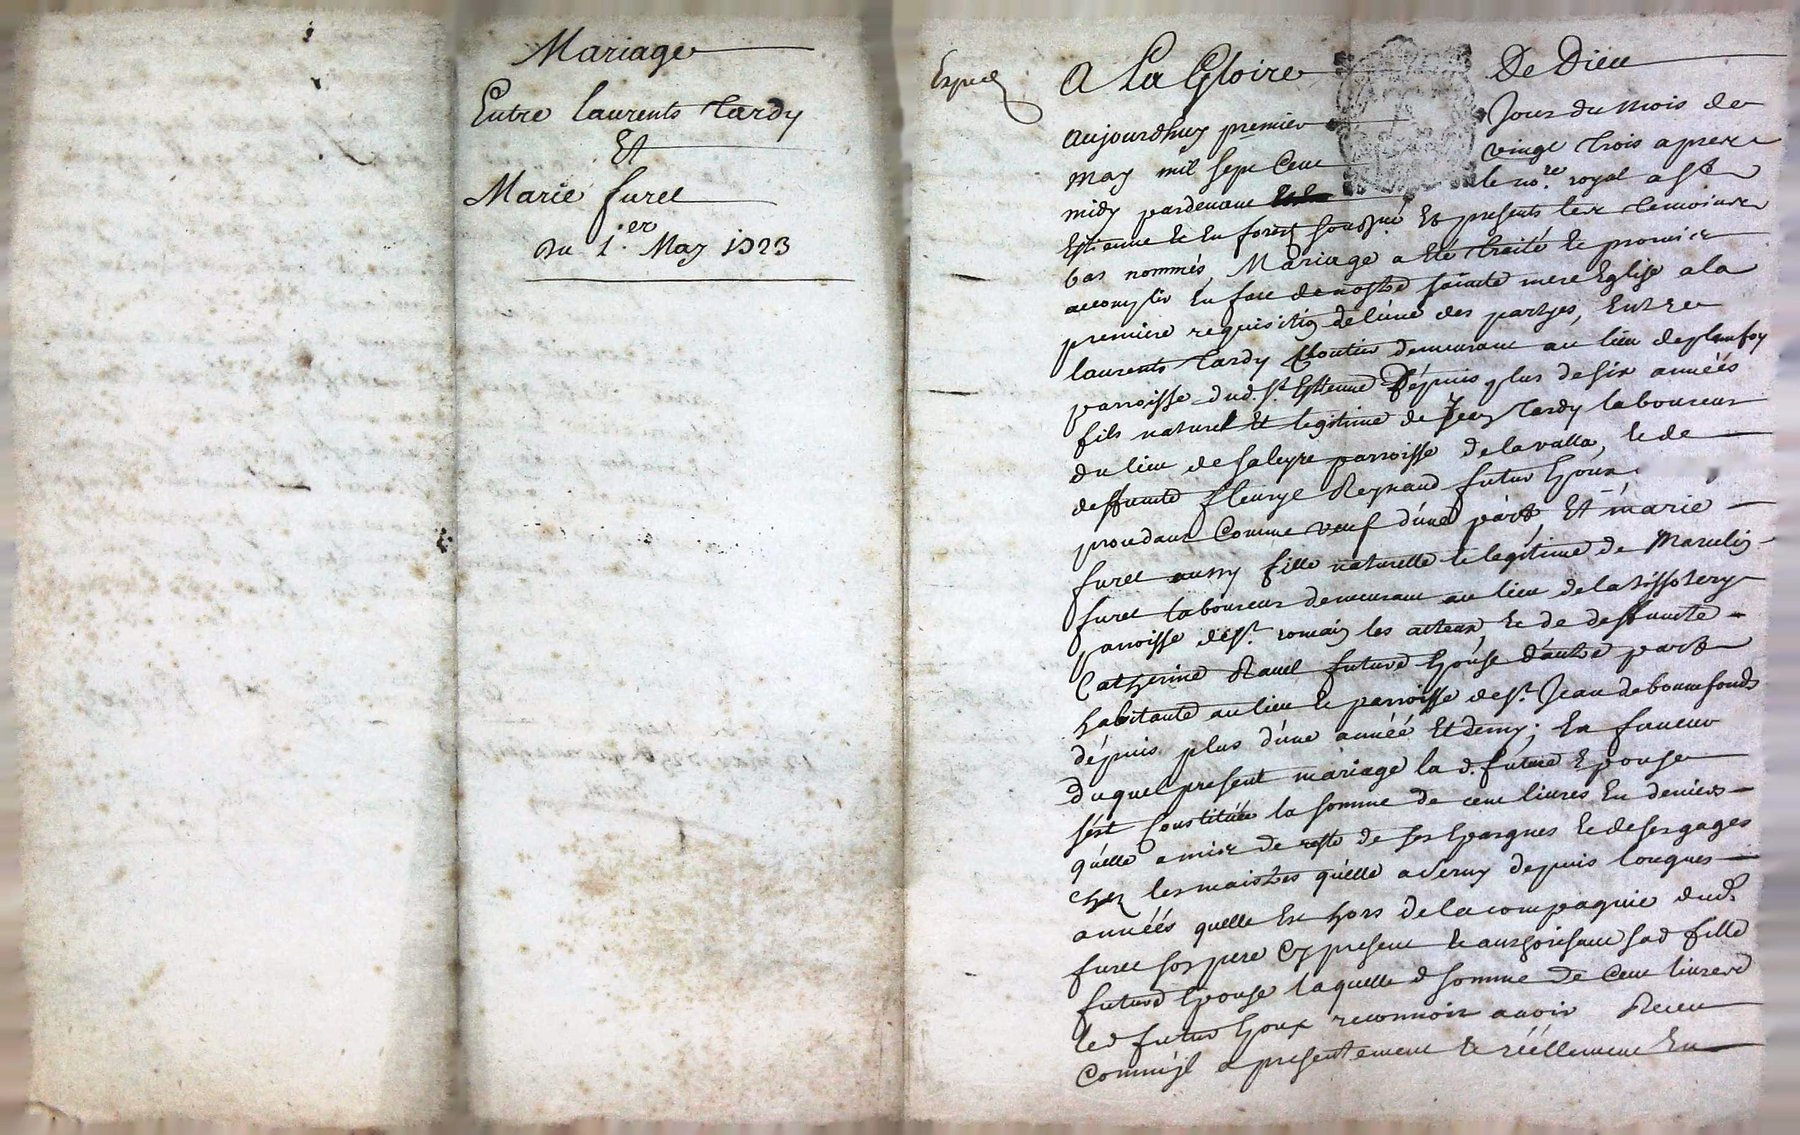 Mariage
Entre laurents Tardy
Et
Marie furet
Du 1.er May 1723
Exped
A La Gloire De Dieu
aujourdhuy premier Jour du mois de
may mil sept Cent vingt trois apres
midy pardevant le no.re royal a St
Estienne et en forest soussigné Et presents les temoins
bas nommés, Mariage a eté traité et promis
accomplir En face de nostre sainte mere Eglise a la
premiere requisition de l'une des partyes, Entre
laurents Tardy Cloutier demeurant au lieu de planfoy
parroisse dud. St. Estienne Depuis plus de six années
fils naturel Et legitime de Jean Tardy laboureur
du lieu de saleyre parroisse de lavalla, et de
deffunte fleurye Reynaud futur Epoux
procedant Comme veuf d'une part, Et marie
furet aussy fille naturelle et legitime de Marcelin
furet laboureur demeurant au lieu de la tissotery
parroisse de St. romain les atteux, et de deffuncte
Catherine Ravel future Epouse d'autre part
habitante au lieu et parroisse de St. Jean de bonnefonds
dépuis plus d'une année Et demy; En faveur
Duquel present mariage la d. future Epouse
s'est Constituée la somme de cent livres En deniers
qu'elle a mis de reste de ses Epargnes et de ses gages
chez les maistres qu'elle a servy depuis longues
années quelle Est hors de la compagnie dud.
furet son pere Cy present et authorisant sad fille
future Epouse laquelle d somme de Cent livres
led futur Epoux reconnoit avoir Receu
Comme a presentement et réellement En